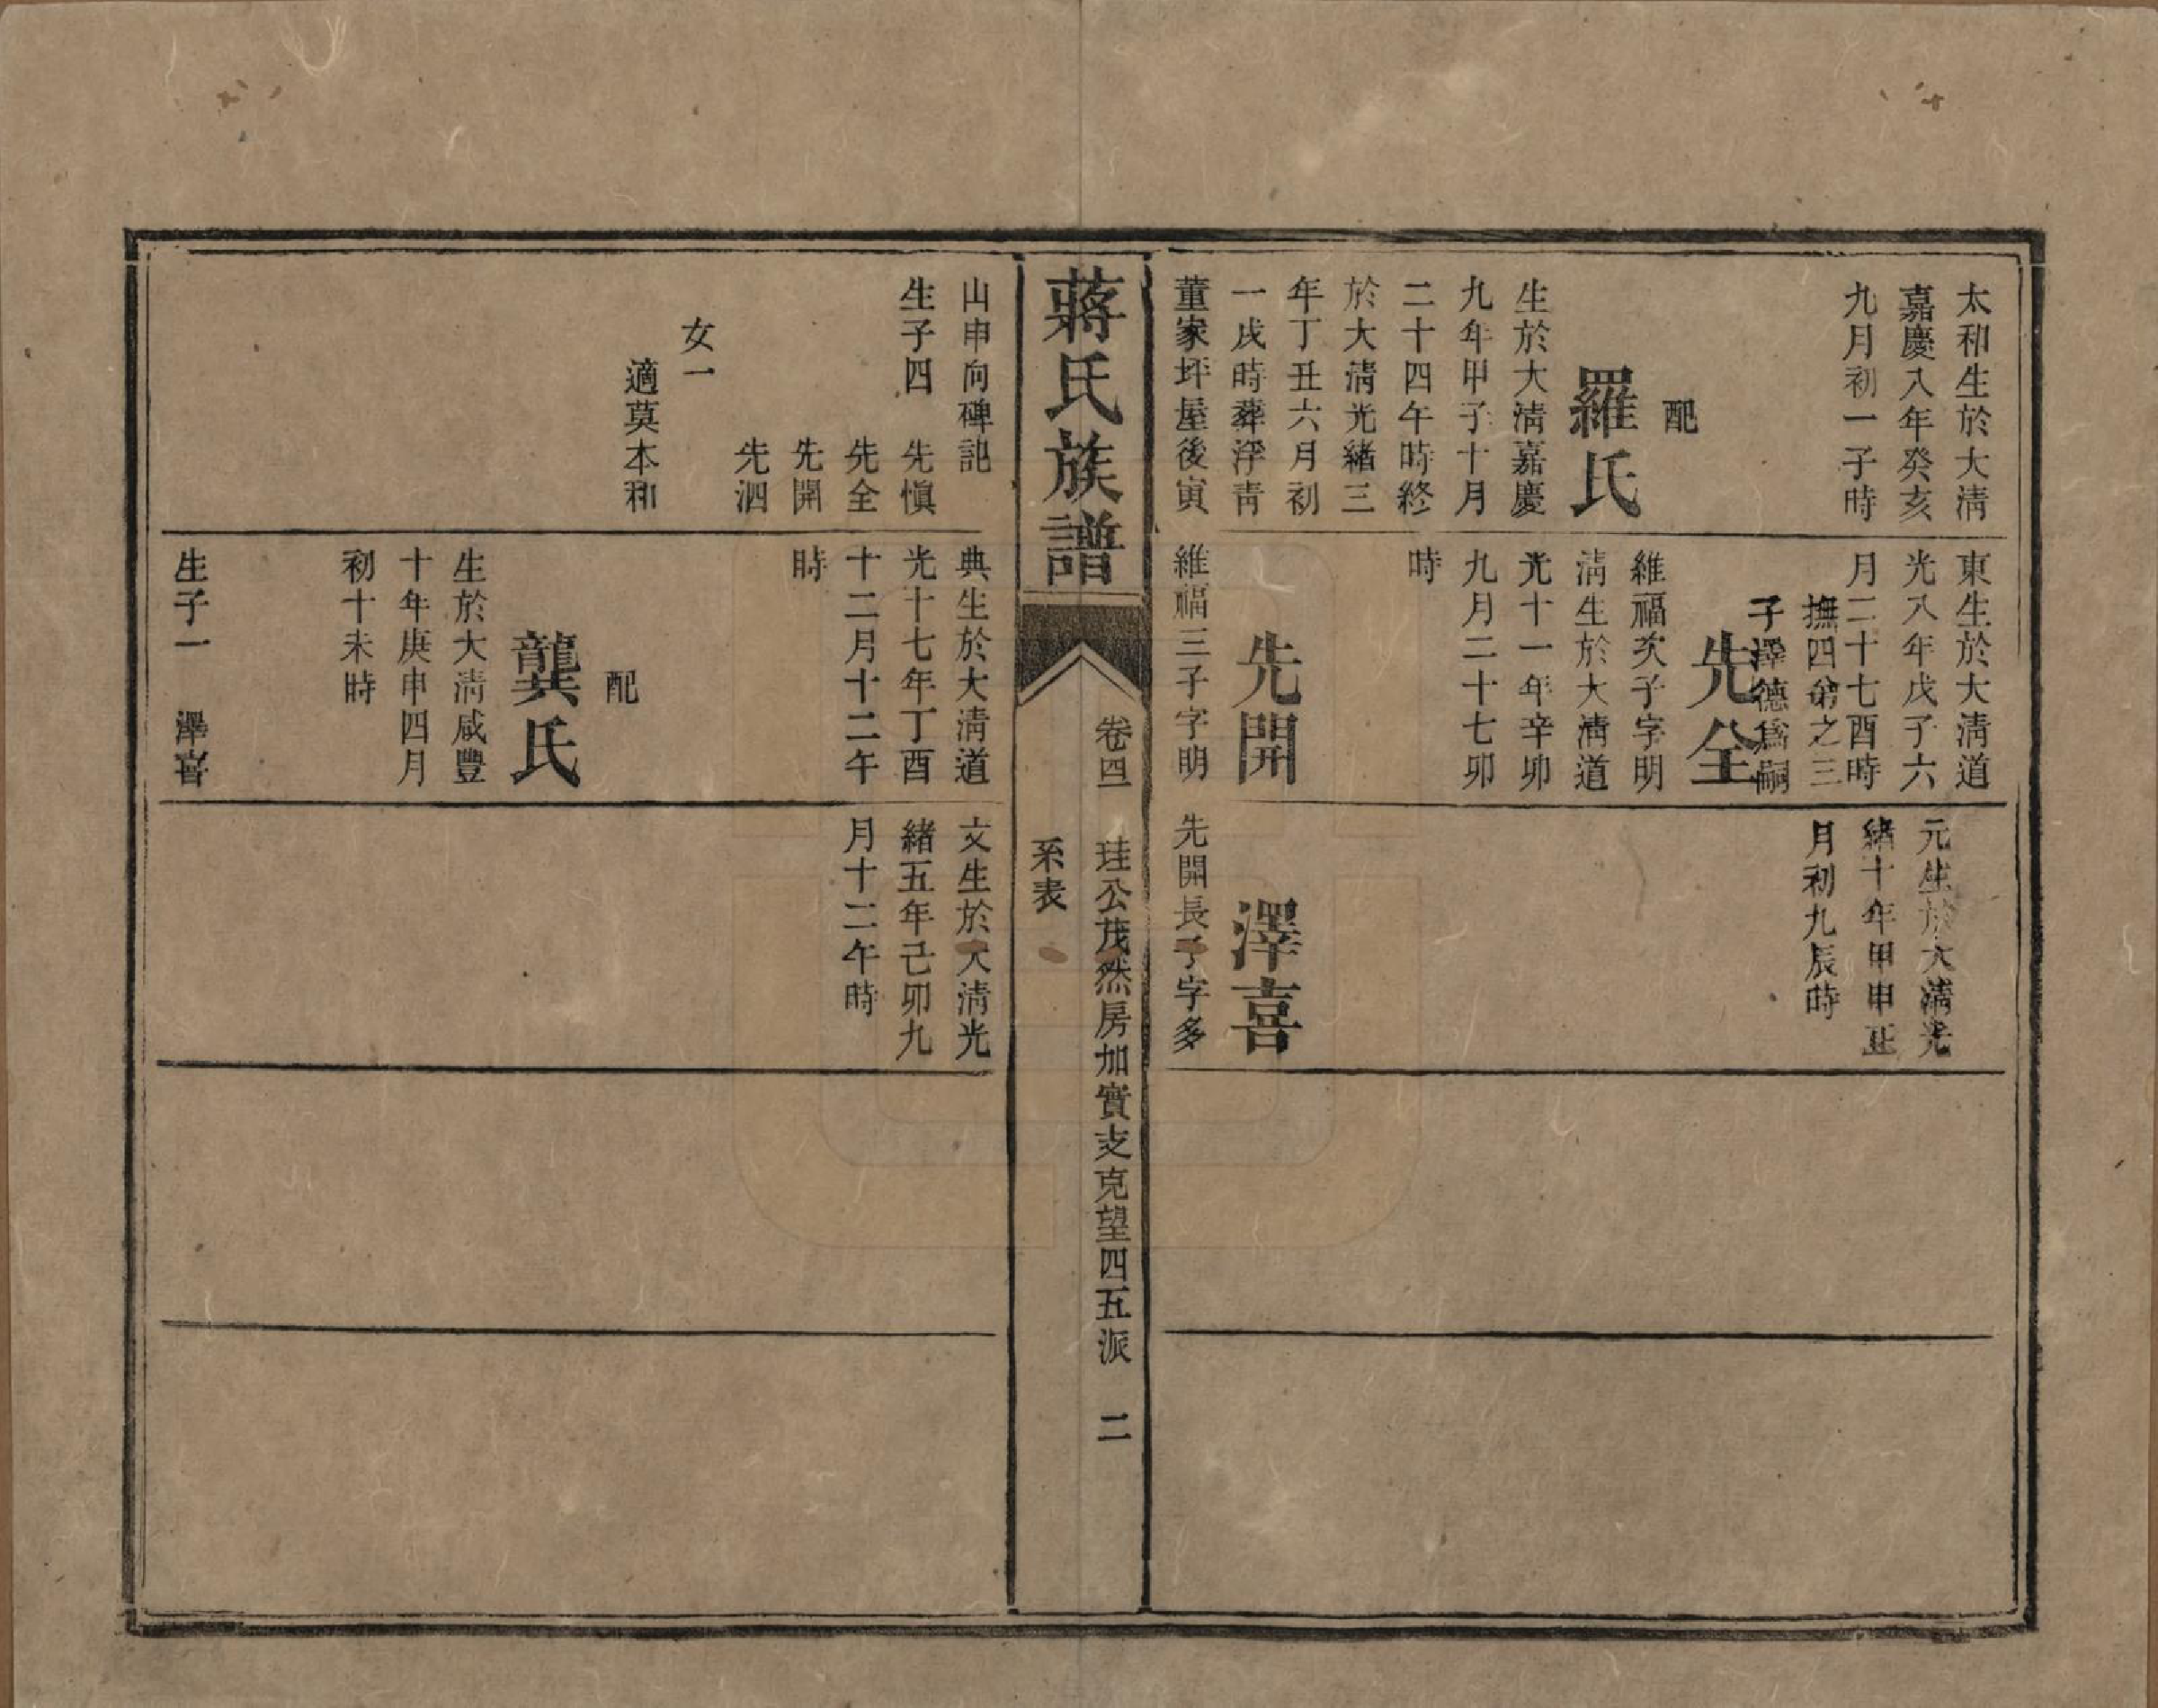 太和生於大淸
嘉慶八年癸亥
九月初一子時
配
羅氏
生於大淸嘉慶
九年甲子十月
二十四午時終
於大淸光緖三
年丁丑六月初
一戌時葬浮靑
董家坪屋後寅
東生於大淸道
光八年戊子六
月二十七酉時
撫四弟之三
子澤德爲嗣
先全
維福次子字明
淸生於大淸道
光十一年辛卯
九月二十七卯
時
先開
維福三子字明
元生於大淸光
緖十年甲申正
月初九辰時
澤喜
先開長子字多
蔣氏族譜
卷四
珪公茂然房加實支克望四五派
二
系表
山申向碑記
生子四 先愼
先全
先開
先泗
女一
適莫本和
典生於大淸道
光十七年丁酉
十二月十二午
時
配
龔氏
生於大淸咸豐
十年庚申四月
初十未時
生子一 澤喜
文生於大淸光
緖五年己卯九
月十二午時